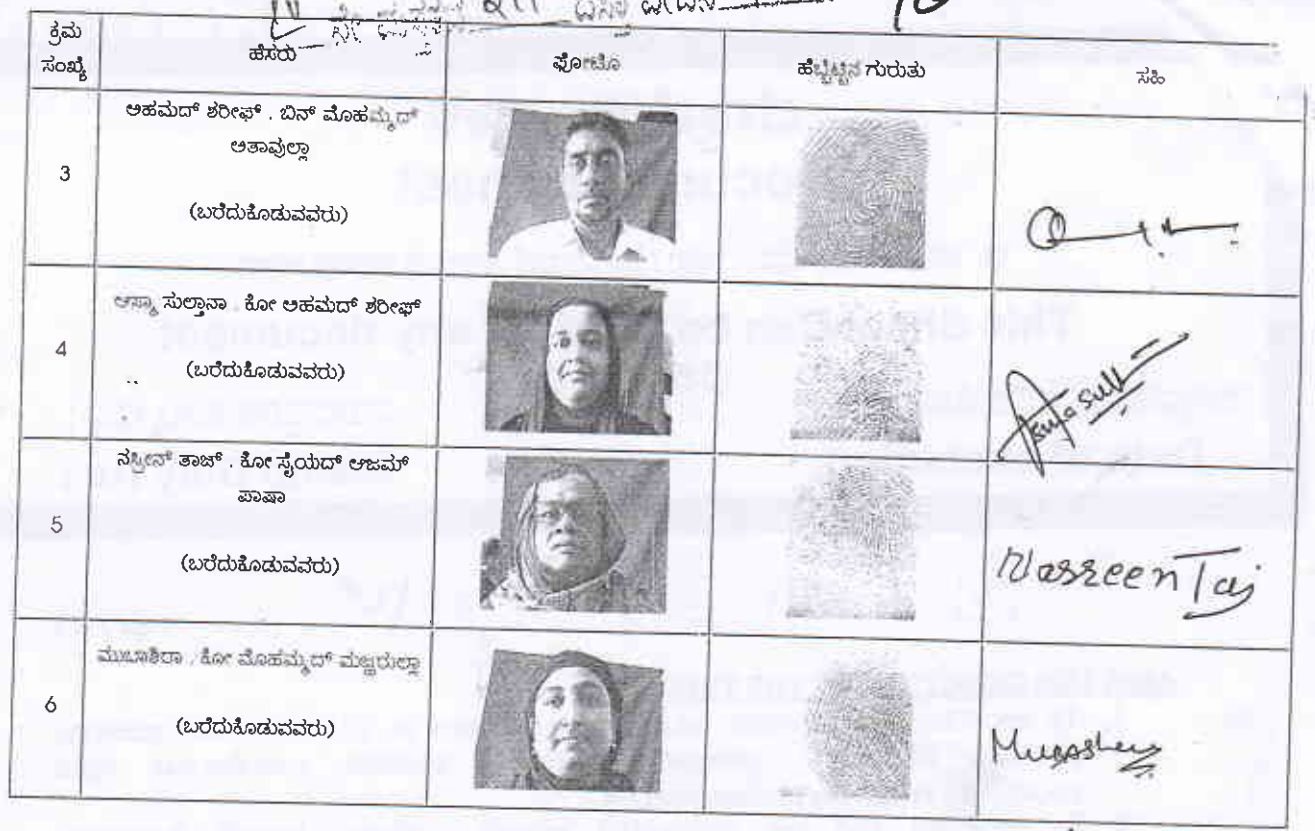 ನೇ
ಕ್ರಮ ಸಂಖ್ಯೆ ಹೆಸರು ಫೋಟೊ ಹೆಬ್ಬೆಟ್ಟಿನ ಗುರುತು ಸಹಿ
3 ಅಹಮದ್ ಶರೀಫ್ . ಬಿನ್ ಮೊಹಮ್ಮದ್
ಅತಾವುಲ್ಲಾ
(ಬರೆದುಕೊಡುವವರು)
4 ಆಸ್ಮಾ ಸುಲ್ತಾನಾ . ಕೋ ಅಹಮದ್ ಶರೀಫ್
(ಬರೆದುಕೊಡುವವರು)
5 ನಸ್ರೀನ್ ತಾಜ್ . ಕೋ ಸೈಯದ್ ಆಜಮ್
ಪಾಷಾ
(ಬರೆದುಕೊಡುವವರು)
Nasreen Taj
6 ಮುಬಾಶಿರಾ . ಕೋ ಮೊಹಮ್ಮದ್ ಮಜ್ಹರುಲ್ಲಾ
(ಬರೆದುಕೊಡುವವರು)